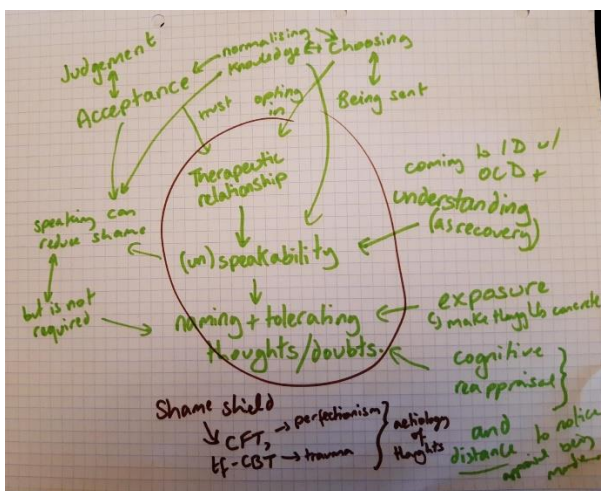 Judgement
Acceptance
normalising
knowledge
Choosing
Being sent
trust
opting
in
Therapeutic
relationship
coming to ID w/
OCD +
understanding
(as recovery)
speaking can
reduce shame
(un)speakability
but is not
required
naming + tolerating
thoughts/doubts.
exposure
make thoughts concrete
cognitive
reappraisal
and
distance to notice
appraisal being
Shame shield
CFT, → perfectionism
tf-CBT → trauma
aetiology
of
thoughts